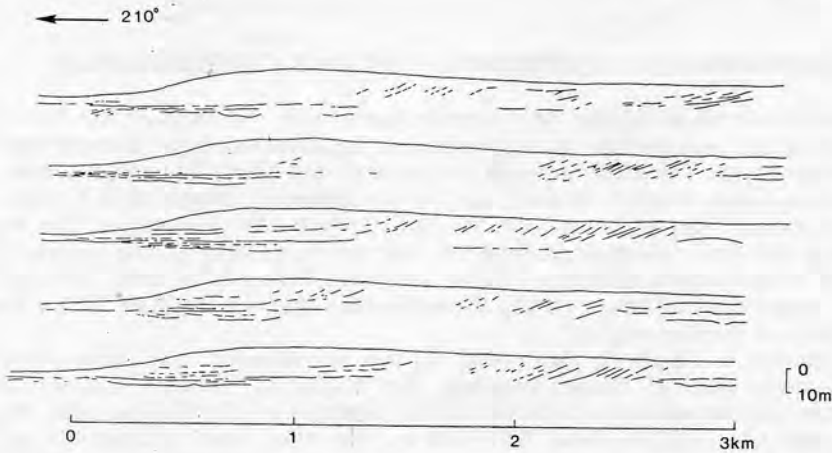 210°
0
10m
0
1
2
3km